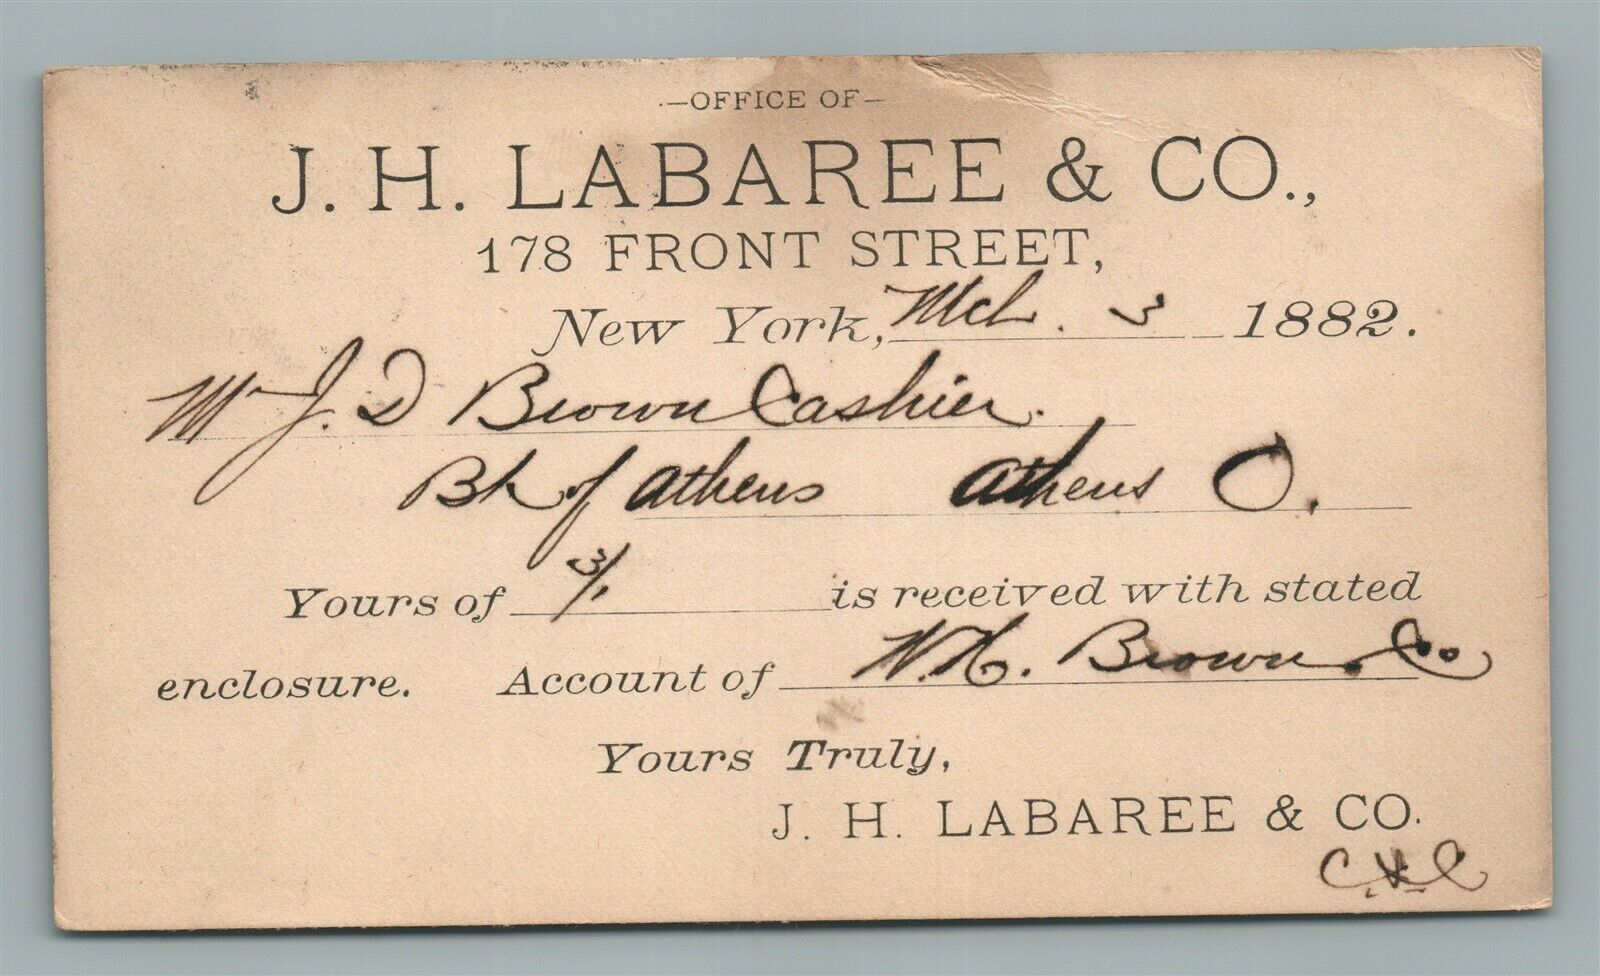 —OFFICE OF—
J. H. LABAREE & CO.,
178 FRONT STREET,
New York, Mch. 3 1882.
Mr J. D Brown Cashier.
Bk of Athens Athens O.
Yours of 3/1 is received with stated
enclosure. Account of W.H. Brown & Co
Yours Truly,
J. H. LABAREE & CO.